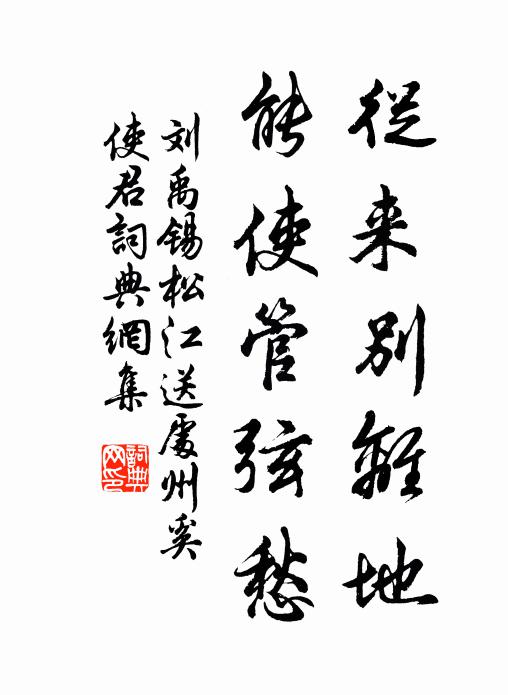 從来别離地
能使管弦愁
刘禹锡松江送處州奚
使君詞典網集
詞典
网印